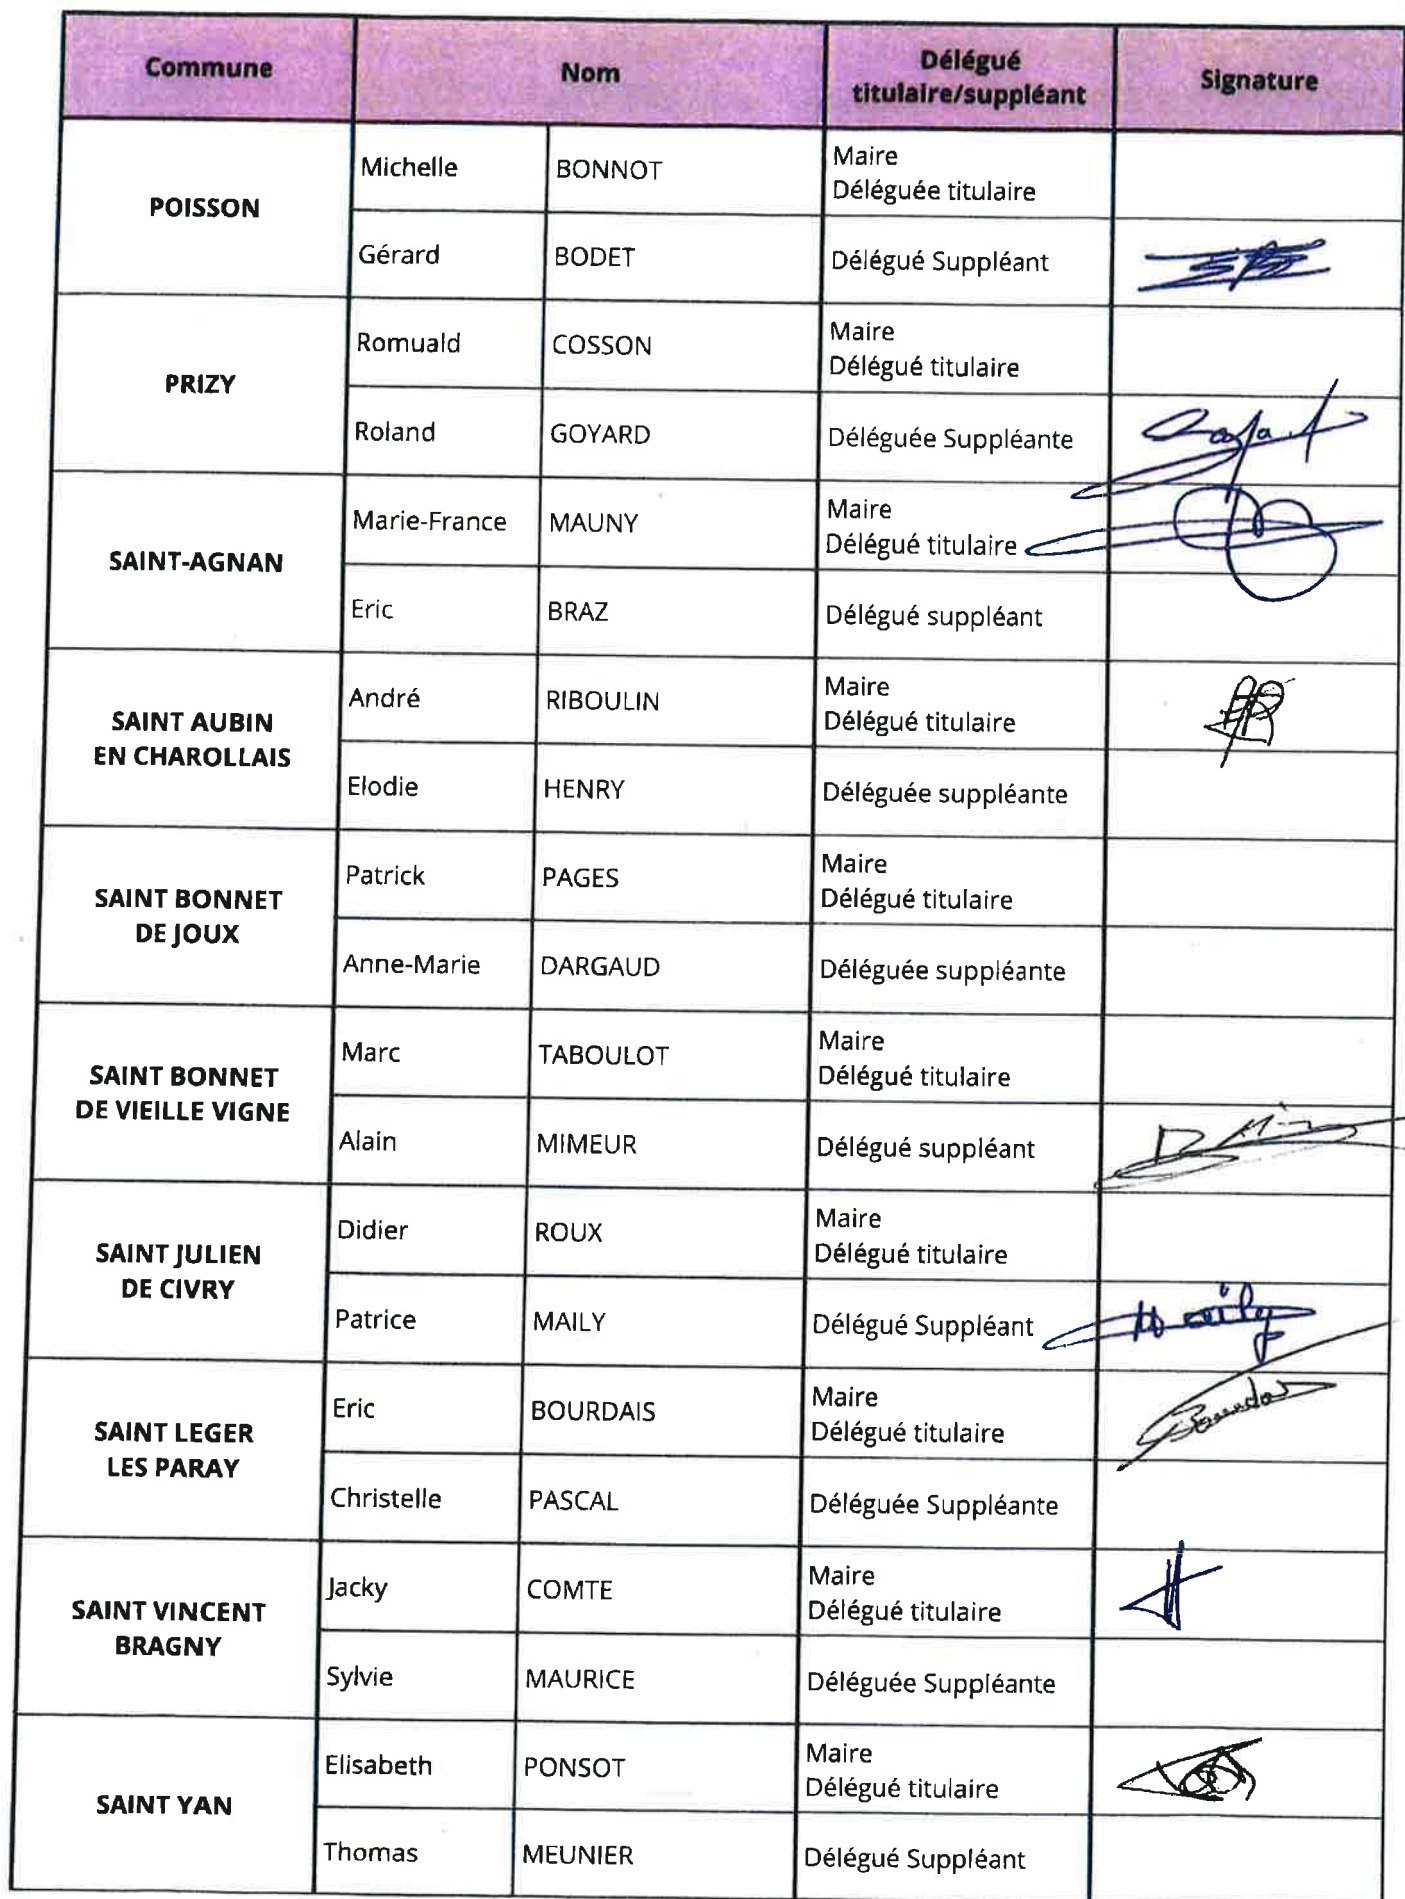 Commune Nom Délégué titulaire/suppléant Signature
POISSON
Michelle BONNOT Maire
Déléguée titulaire
Gérard BODET Délégué Suppléant
PRIZY
Romuald COSSON Maire
Délégué titulaire
Roland GOYARD Déléguée Suppléante
SAINT-AGNAN
Marie-France MAUNY Maire
Délégué titulaire
Eric BRAZ Délégué suppléant
SAINT AUBIN
EN CHAROLLAIS
André RIBOULIN Maire
Délégué titulaire
Elodie HENRY Déléguée suppléante
SAINT BONNET
DE JOUX
Patrick PAGES Maire
Délégué titulaire
Anne-Marie DARGAUD Déléguée suppléante
SAINT BONNET
DE VIEILLE VIGNE
Marc TABOULOT Maire
Délégué titulaire
Alain MIMEUR Délégué suppléant
SAINT JULIEN
DE CIVRY
Didier ROUX Maire
Délégué titulaire
Patrice MAILY Délégué Suppléant Maily
SAINT LEGER
LES PARAY
Eric BOURDAIS Maire
Délégué titulaire
Christelle PASCAL Déléguée Suppléante
SAINT VINCENT
BRAGNY
Jacky COMTE Maire
Délégué titulaire
Sylvie MAURICE Déléguée Suppléante
SAINT YAN
Elisabeth PONSOT Maire
Délégué titulaire
Thomas MEUNIER Délégué Suppléant